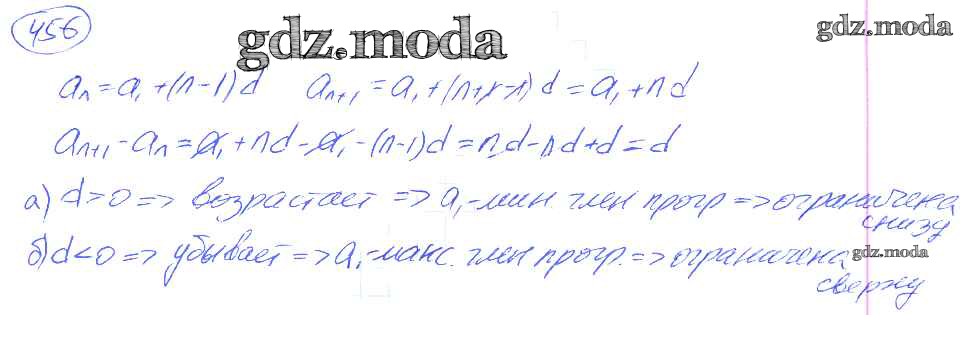 456
gdz.moda
gdz.moda
aₙ = a₁ + (n-1)d aₙ₊₁ = a₁ + (n+1-1)d = a₁ + nd
aₙ₊₁ - aₙ = a₁ + nd - a₁ - (n-1)d = nd - nd + d = d
а) d > 0 => возрастает => a₁ - мин. член прогр => ограничена
снизу
б) d < 0 => убывает => a₁ - макс. член прогр. => ограничена
gdz.moda
сверху